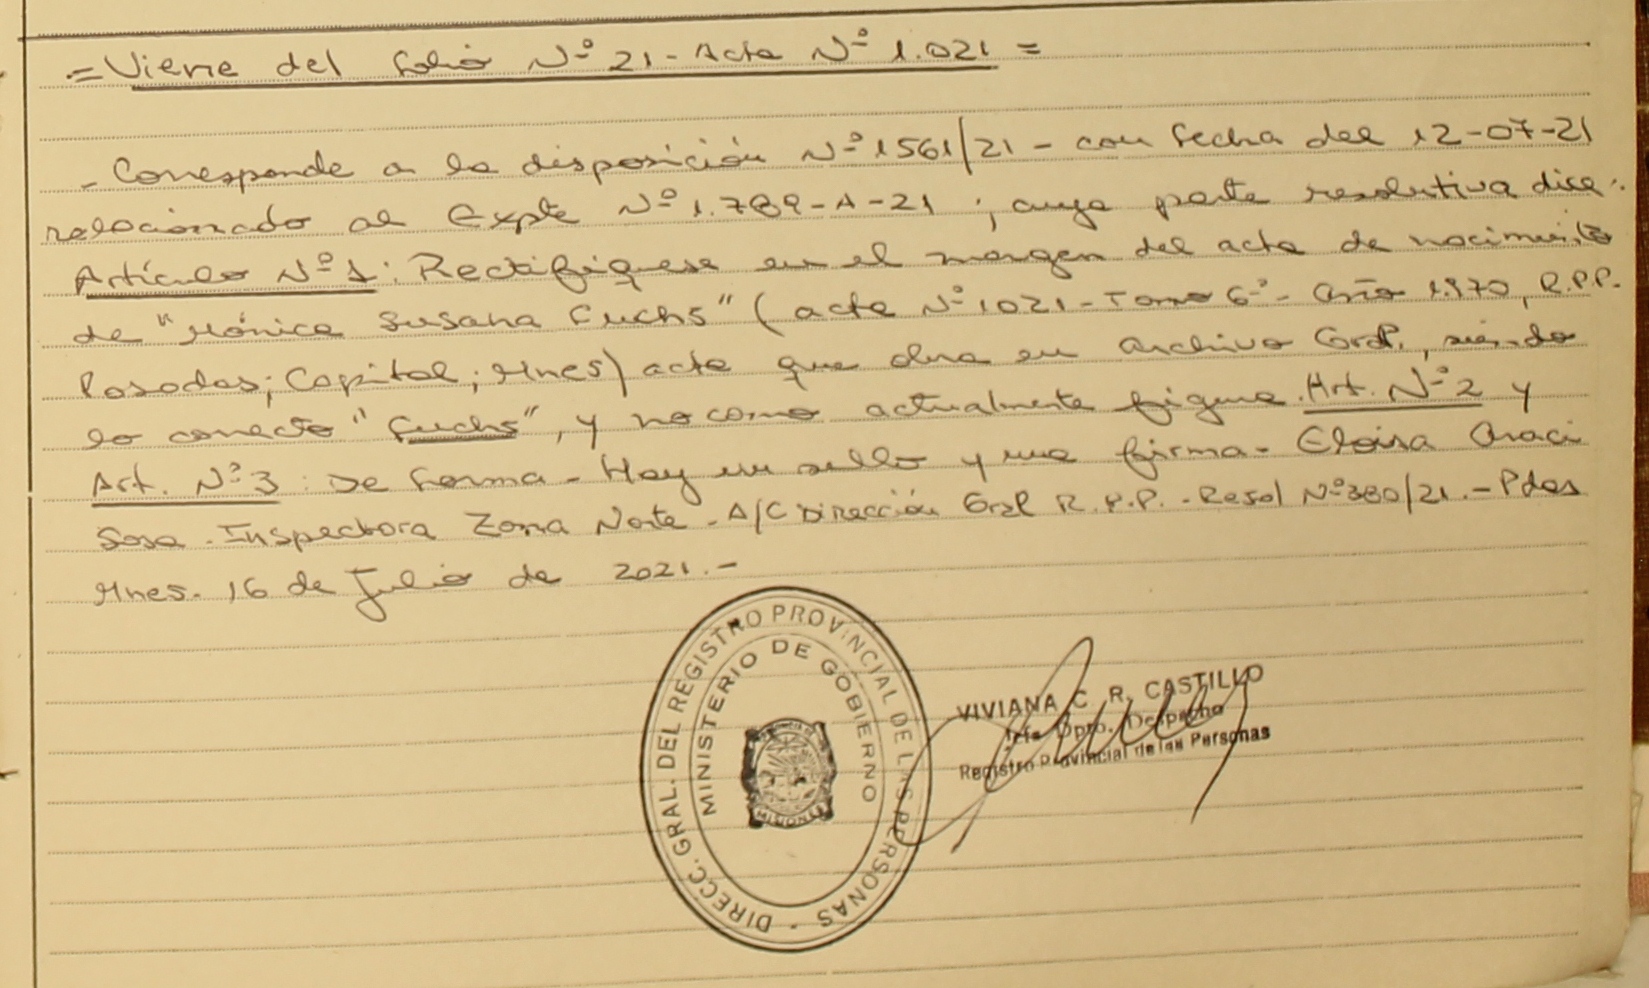 = Viene del folio Nº 21 - Acta Nº 1.021 =
- Corresponde a la disposición Nº 1561/21 - con fecha del 12-07-21
relacionado al Expte Nº 1.789-A-21 ; cuya parte resolutiva dice:
Artículo Nº 1: Rectifíquese en el margen del acta de nacimiento
de "Mónica Susana Fuchs" (acta Nº 1021 - Tomo 6º - año 1.970, R.P.P.
Posadas; Capital; Mnes) acta que obra en archivo Gral., siendo
lo correcto "Fuchs", y no como actualmente figura. Art. Nº 2 y
Art. Nº 3: De forma - Hay un sello y una firma - Eloisa Araci
Sosa - Inspectora Zona Norte - A/C Dirección Gral R.P.P. - Resol Nº 380/21.- Pdas
Mnes. 16 de Julio de 2021.-
DIRECC. GRAL. DEL REGISTRO PROVINCIAL DE LAS PERSONAS -
MINISTERIO DE GOBIERNO
MISIONES
VIVIANA C. R. CASTILLO
Jefa Dpto. Despacho
Registro Provincial de las Personas